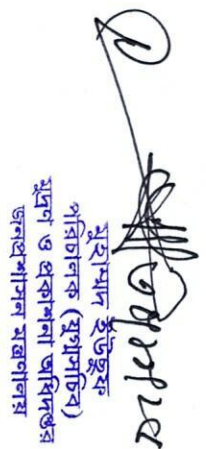 মুহাম্মদ ইউছুফ
পরিচালক (যুগ্মসচিব)
মুদ্রণ ও প্রকাশনা অধিদপ্তর
জনপ্রশাসন মন্ত্রণালয়